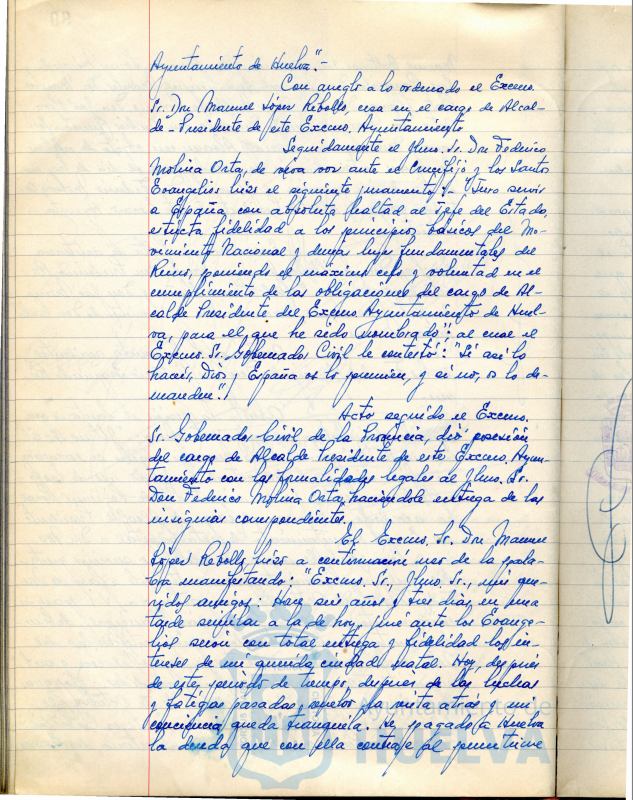 Ayuntamiento de Huelva".-
Con arreglo a lo ordenado el Excmo.
Sr. Don Manuel López Rebollo, cesa en el cargo de Alcal-
de-Presidente de este Excmo. Ayuntamiento
Seguidamente el Ilmo. Sr. Don Federico
Molina Orta, de viva voz ante el Crucifijo y los Santos
Evangelios hizo el siguiente juramento: - "Juro servir
a España con absoluta lealtad al Jefe del Estado,
estricta fidelidad a los principios básicos del Mo-
vimiento Nacional y demás leyes fundamentales del
Reino, poniendo el máximo celo y voluntad en el
cumplimiento de las obligaciones del cargo de Al-
calde Presidente del Excmo. Ayuntamiento de Huel-
va, para el que he sido nombrado"; al cual el
Excmo. Sr. Gobernador Civil le contestó: "Si así lo
hacéis, Dios y España os lo premien, y si no, os lo de-
manden".
Acto seguido el Excmo.
Sr. Gobernador Civil de la Provincia, dió posesión
del cargo de Alcalde Presidente de este Excmo. Ayun-
tamiento con las formalidades legales al Ilmo. Sr.
Don Federico Molina Orta, haciéndole entrega de las
insignias correspondientes.
El Excmo. Sr. Don Manuel
López Rebollo, hizo a continuación uso de la pala-
bra manifestando: "Excmo. Sr., Ilmo. Sr., mis que-
ridos amigos: Hace seis años y tres días, en una
tarde similar a la de hoy, juré ante los Evange-
lios servir con total entrega y fidelidad los in-
tereses de mi querida ciudad natal. Hoy, después
de este periodo de tiempo, después de las luchas
y fatigas pasadas, vuelvo la vista atrás y mi
conciencia queda tranquila. He pagado a Huelva
la deuda que con ella contraje al permitirme
Ayuntamiento de
HUELVA